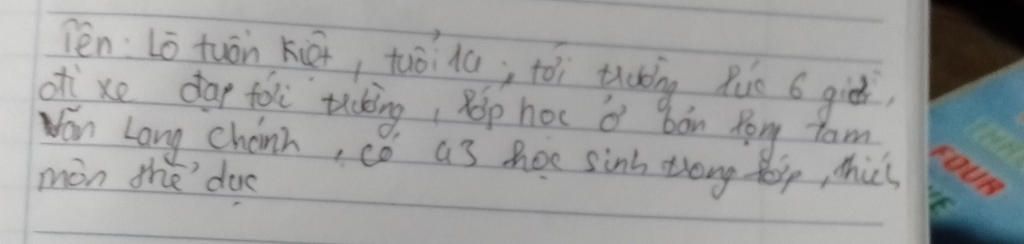 Tên: Lò tuấn Kiệt, tuổi 10, tới trường lúc 6 giờ,
đi xe đạp tới trường, lớp học ở bản Poọng tam
Văn Lang Chánh, có 23 học sinh trong lớp, thích
môn thể dục
FOUR